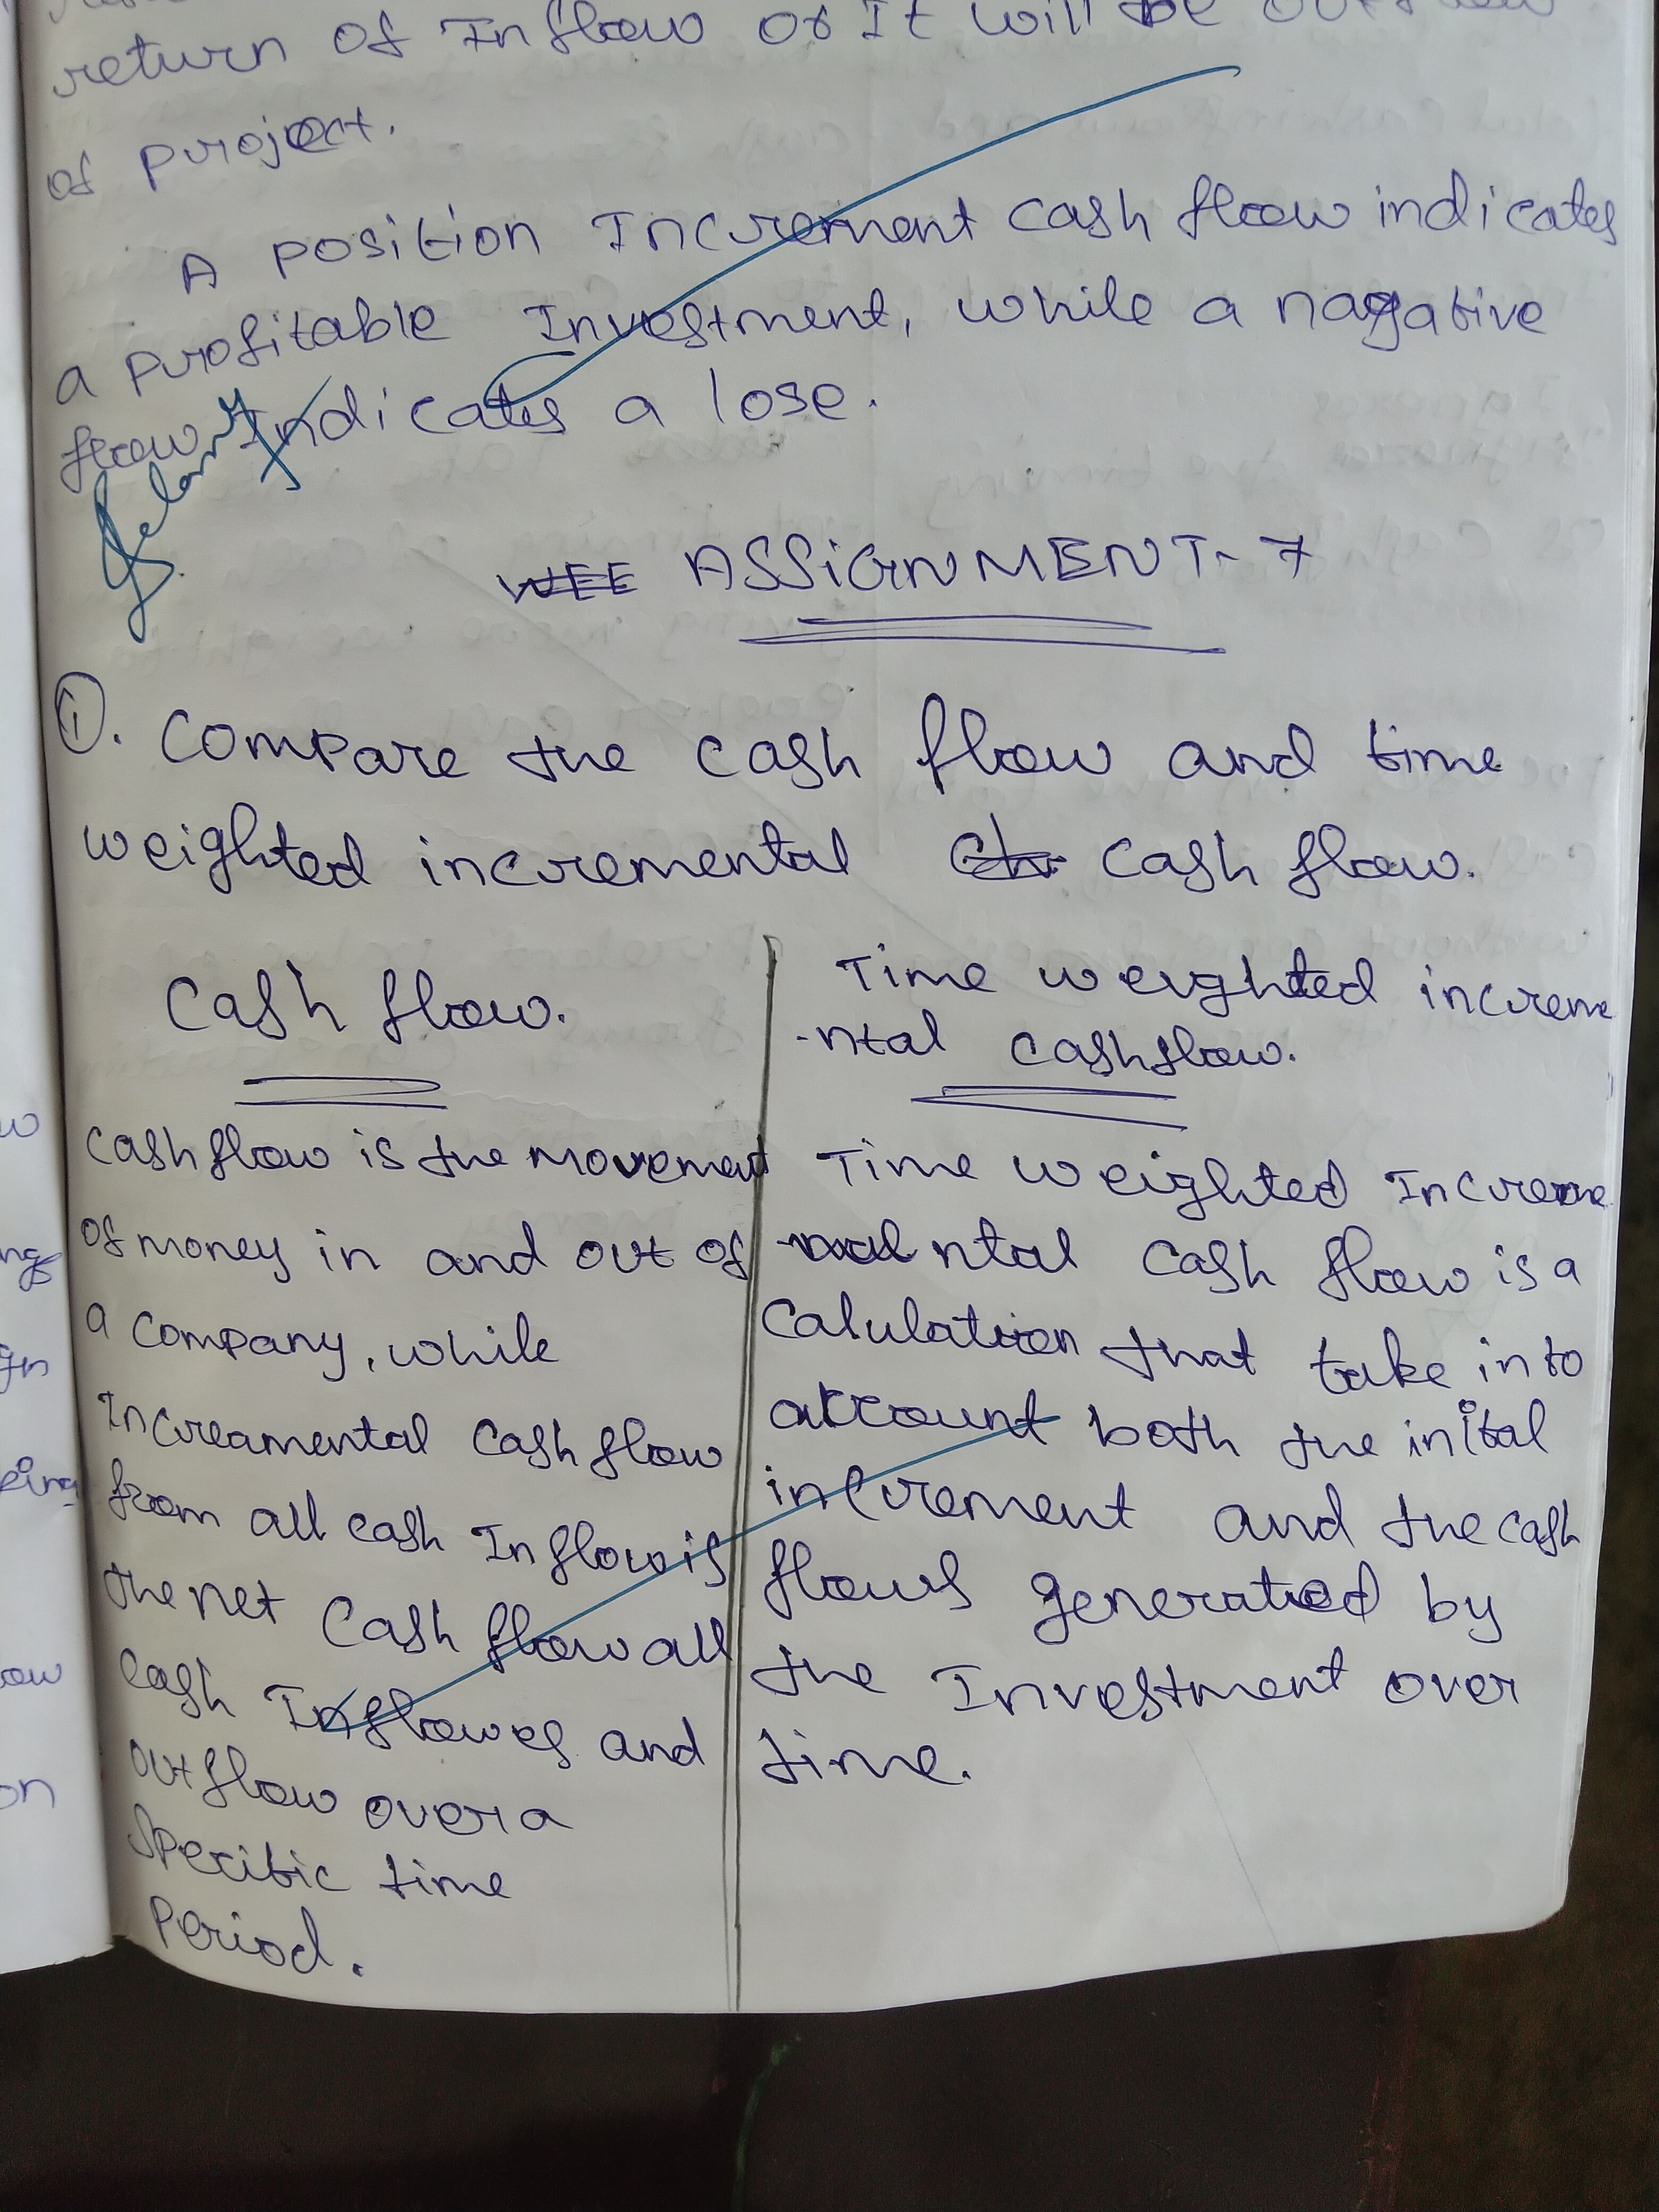 return of Inflow or It will be outflow
of project.
A position Increment cash flow indicates
a profitable Investment, while a nagative
flow Indicates a lose.
WEE ASSIGNMENT-7
①. Compare the cash flow and time
weighted incremental cash flow.
Cash flow.
Cashflow is the movement
of money in and out of
a company, while
Increamental cash flow
from all cash Inflow is
the net cash flow all
cash Inflowes and
outflow over a
specific time
period.
Time weighted increme
-ntal cashflow.
Time weighted Increme
ntal cash flow is a
calulation that take into
account both the inital
increment and the cash
flows generated by
the Investment over
time.